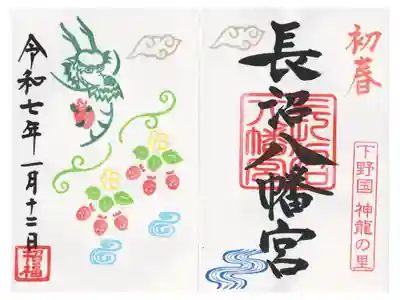 初春
下野国 神龍の里
長沼八幡宮
長沼
八幡宮
令和七年一月十二日
招福